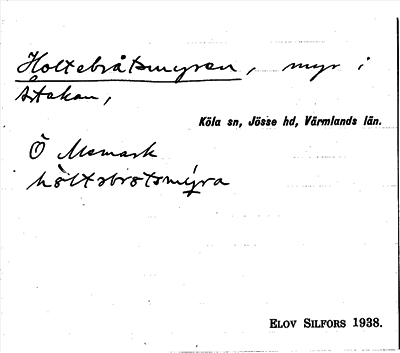 Holtebråtsmyren, myr i
Stakan,
Köla sn, Jösse hd, Värmlands län.
Ö
höltəbrotsmy̌ra
ELOV SILFORS 1938.